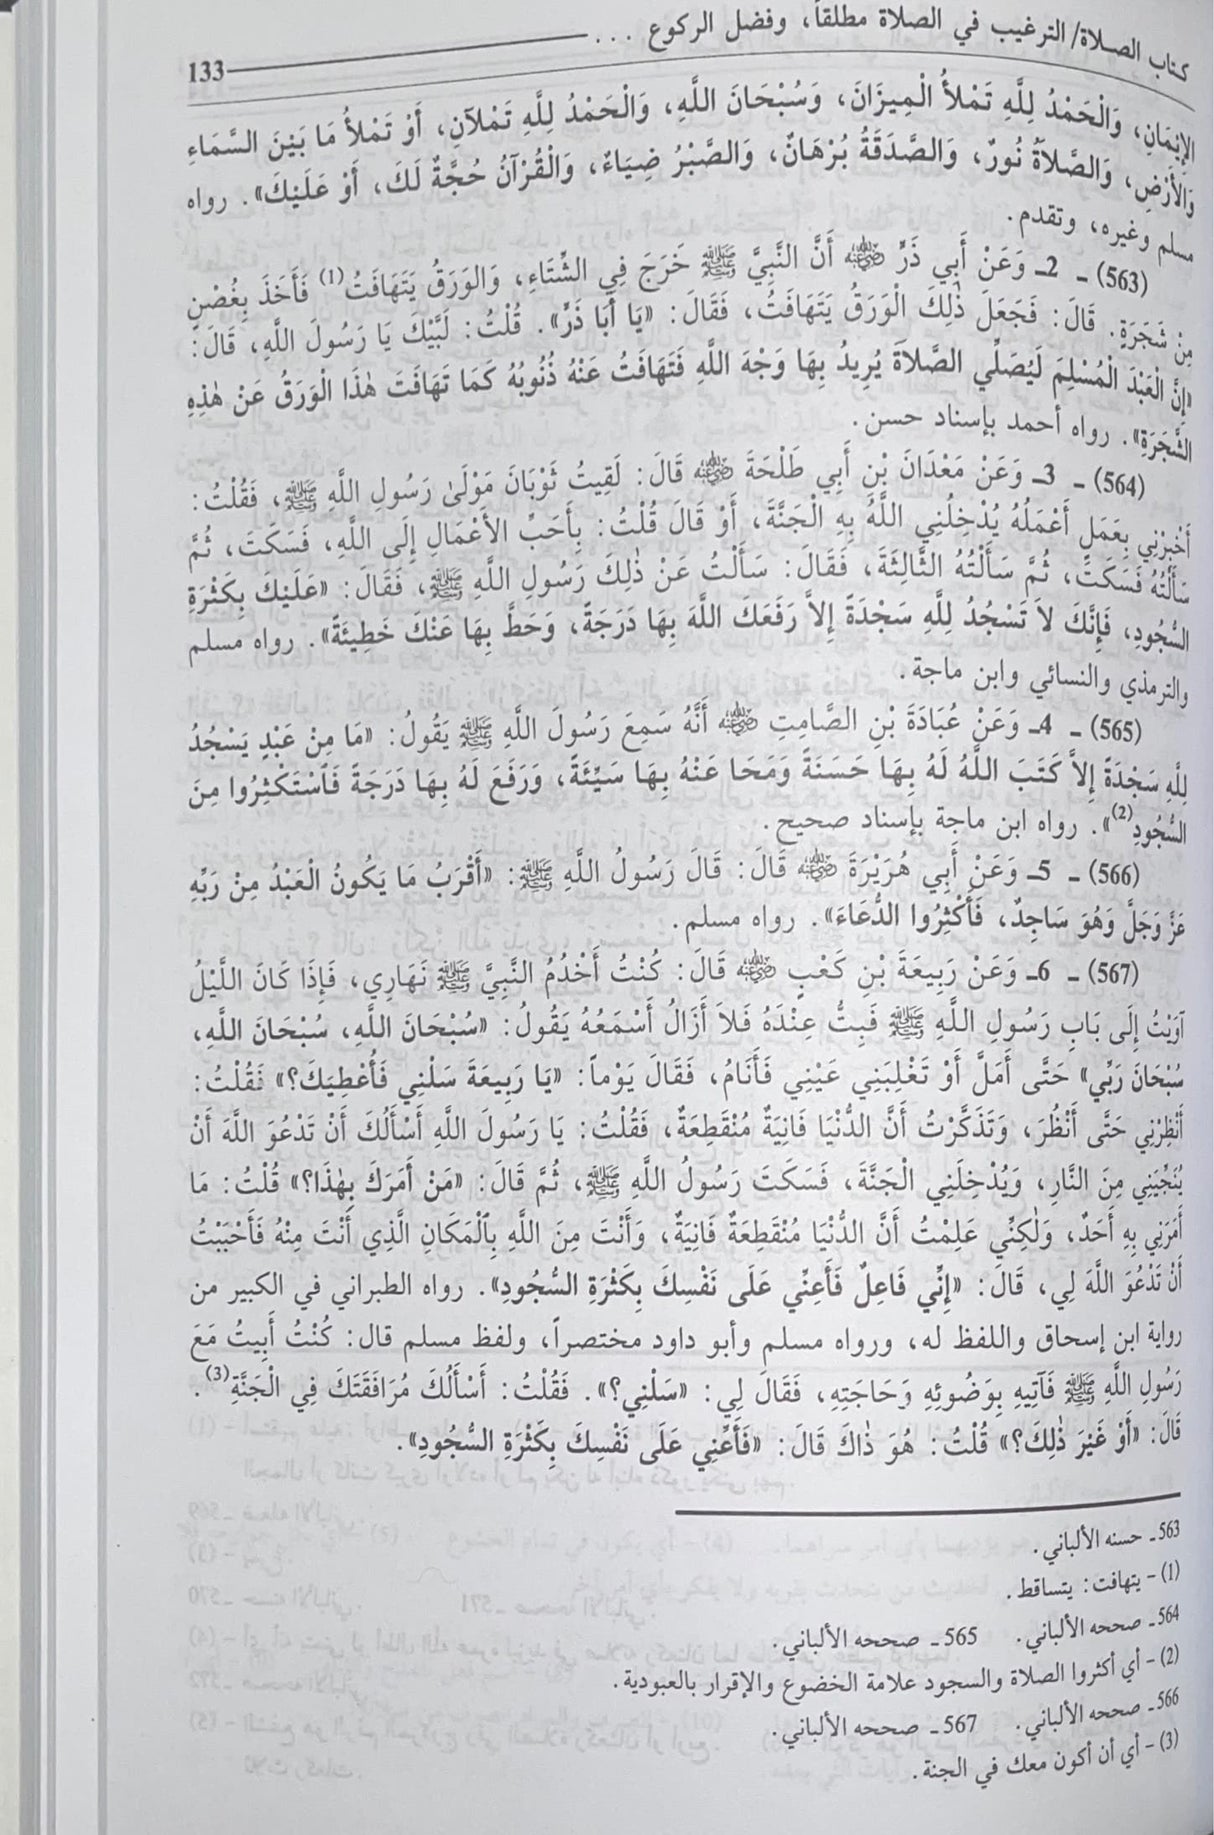 كتاب الصلاة/ الترغيب في الصلاة مطلقاً، وفضل الركوع ... 133
الإِيْمَانِ، وَالْحَمْدُ لِلَّهِ تَمْلأُ الْمِيزَانَ، وَسُبْحَانَ اللَّهِ، وَالْحَمْدُ لِلَّهِ تَمْلآنِ، أَوْ تَمْلأُ مَا بَيْنَ السَّمَاءِ
وَالأَرْضِ، وَالصَّلاَةُ نُورٌ، وَالصَّدَقَةُ بُرْهَانٌ، وَالصَّبْرُ ضِيَاءٌ، وَالْقُرْآنُ حُجَّةٌ لَكَ، أَوْ عَلَيْكَ». رواه
مسلم وغيره، وتقدم.
(563) ـ 2ـ وَعَنْ أَبِي ذَرٍّ رضي الله عنه أَنَّ النَّبِيَّ ﷺ خَرَجَ فِي الشِّتَاءِ، وَالوَرَقُ يَتَهَافَتُ(1) فَأَخَذَ بِغُصْنٍ
مِنْ شَجَرَةٍ. قَالَ: فَجَعَلَ ذٰلِكَ الْوَرَقُ يَتَهَافَتُ، فَقَالَ: «يَا أَبَا ذَرٍّ». قُلْتُ: لَبَّيْكَ يَا رَسُولَ اللَّهِ، قَالَ:
«إِنَّ الْعَبْدَ الْمُسْلِمَ لَيُصَلِّي الصَّلاَةَ يُرِيدُ بِهَا وَجْهَ اللَّهِ فَتَهَافَتُ عَنْهُ ذُنُوبُهُ كَمَا تَهَافَتَ هٰذَا الْوَرَقُ عَنْ هٰذِهِ
الشَّجَرَةِ». رواه أحمد بإسناد حسن.
(564) ـ 3ـ وَعَنْ مَعْدَانَ بْنِ أَبِي طَلْحَةَ رضي الله عنه قَالَ: لَقِيتُ ثَوْبَانَ مَوْلَىٰ رَسُولِ اللَّهِ ﷺ، فَقُلْتُ:
أَخْبِرْنِي بِعَمَلٍ أَعْمَلُهُ يُدْخِلُنِي اللَّهُ بِهِ الْجَنَّةَ، أَوْ قَالَ قُلْتُ: بِأَحَبِّ الأَعْمَالِ إِلَى اللَّهِ، فَسَكَتَ، ثُمَّ
سَأَلْتُهُ فَسَكَتَ، ثُمَّ سَأَلْتُهُ الثَّالِثَةَ، فَقَالَ: سَأَلْتُ عَنْ ذٰلِكَ رَسُولَ اللَّهِ ﷺ، فَقَالَ: «عَلَيْكَ بِكَثْرَةِ
السُّجُودِ، فَإِنَّكَ لاَ تَسْجُدُ لِلَّهِ سَجْدَةً إِلاَّ رَفَعَكَ اللَّهَ بِهَا دَرَجَةً، وَحَطَّ بِهَا عَنْكَ خَطِيئَةً». رواه مسلم
والترمذي والنسائي وابن ماجة.
(565) ـ 4ـ وَعَنْ عُبَادَةَ بْنِ الصَّامِتِ رضي الله عنه أَنَّهُ سَمِعَ رَسُولَ اللَّهِ ﷺ يَقُولُ: «مَا مِنْ عَبْدٍ يَسْجُدُ
لِلَّهِ سَجْدَةً إِلاَّ كَتَبَ اللَّهُ لَهُ بِهَا حَسَنَةً وَمَحَا عَنْهُ بِهَا سَيِّئَةً، وَرَفَعَ لَهُ بِهَا دَرَجَةً فَٱسْتَكْثِرُوا مِنَ
السُّجُودِ(2)». رواه ابن ماجة بإسناد صحيح.
(566) ـ 5ـ وَعَنْ أَبِي هُرَيْرَةَ رضي الله عنه قَالَ: قَالَ رَسُولُ اللَّهِ ﷺ: «أَقْرَبُ مَا يَكُونُ الْعَبْدُ مِنْ رَبِّهِ
عَزَّ وَجَلَّ وَهُوَ سَاجِدٌ، فَأَكْثِرُوا الدُّعَاءَ». رواه مسلم.
(567) ـ 6ـ وَعَنْ رَبِيعَةَ بْنِ كَعْبٍ رضي الله عنه قَالَ: كُنْتُ أَخْدُمُ النَّبِيَّ ﷺ نَهَارِي، فَإِذَا كَانَ اللَّيْلُ
آوَيْتُ إِلَى بَابِ رَسُولِ اللَّهِ ﷺ فَبِتُّ عِنْدَهُ فَلاَ أَزَالُ أَسْمَعُهُ يَقُولُ: «سُبْحَانَ اللَّهِ، سُبْحَانَ اللَّهِ،
سُبْحَانَ رَبِّي» حَتَّى أَمَلَّ أَوْ تَغْلِبَنِي عَيْنِي فَأَنَامُ، فَقَالَ يَوْماً: «يَا رَبِيعَةَ سَلْنِي فَأُعْطِيَكَ؟» فَقُلْتُ:
أَنْظِرْنِي حَتَّى أَنْظُرَ، وَتَذَكَّرْتُ أَنَّ الدُّنْيَا فَانِيَةٌ مُنْقَطِعَةٌ، فَقُلْتُ: يَا رَسُولَ اللَّهِ أَسْأَلُكَ أَنْ تَدْعُوَ اللَّهَ أَنْ
يُنَجِّيَنِي مِنَ النَّارِ، وَيُدْخِلَنِي الْجَنَّةَ، فَسَكَتَ رَسُولُ اللَّهِ ﷺ، ثُمَّ قَالَ: «مَنْ أَمَرَكَ بِهٰذَا؟» قُلْتُ: مَا
أَمَرَنِي بِهِ أَحَدٌ، وَلٰكِنِّي عَلِمْتُ أَنَّ الدُّنْيَا مُنْقَطِعَةٌ فَانِيَةٌ، وَأَنْتَ مِنَ اللَّهِ بِٱلْمَكَانِ الَّذِي أَنْتَ مِنْهُ فَأَحْبَبْتُ
أَنْ تَدْعُوَ اللَّهَ لِي، قَالَ: «إِنِّي فَاعِلٌ فَأَعِنِّي عَلَى نَفْسِكَ بِكَثْرَةِ السُّجُودِ». رواه الطبراني في الكبير من
رواية ابن إسحاق واللفظ له، ورواه مسلم وأبو داود مختصراً، ولفظ مسلم قال: كُنْتُ أَبِيتُ مَعَ
رَسُولِ اللَّهِ ﷺ فَآتِيهِ بِوَضُوئِهِ وَحَاجَتِهِ، فَقَالَ لِي: «سَلْنِي؟». فَقُلْتُ: أَسْأَلُكَ مُرَافَقَتَكَ فِي الْجَنَّةِ(3).
قَالَ: «أَوْ غَيْرَ ذٰلِكَ؟» قُلْتُ: هُوَ ذٰاكَ قَالَ: «فَأَعِّنِي عَلَى نَفْسِكَ بِكَثْرَةِ السُّجُودِ».
563ـ حسنه الألباني.
(1)- يتهافت: يتساقط.
564ـ صححه الألباني. 565ـ صححه الألباني.
(2)- أي أكثروا الصلاة والسجود علامة الخضوع والإقرار بالعبودية.
566ـ صححه الألباني. 567ـ صححه الألباني.
(3)- أي أن أكون معك في الجنة.